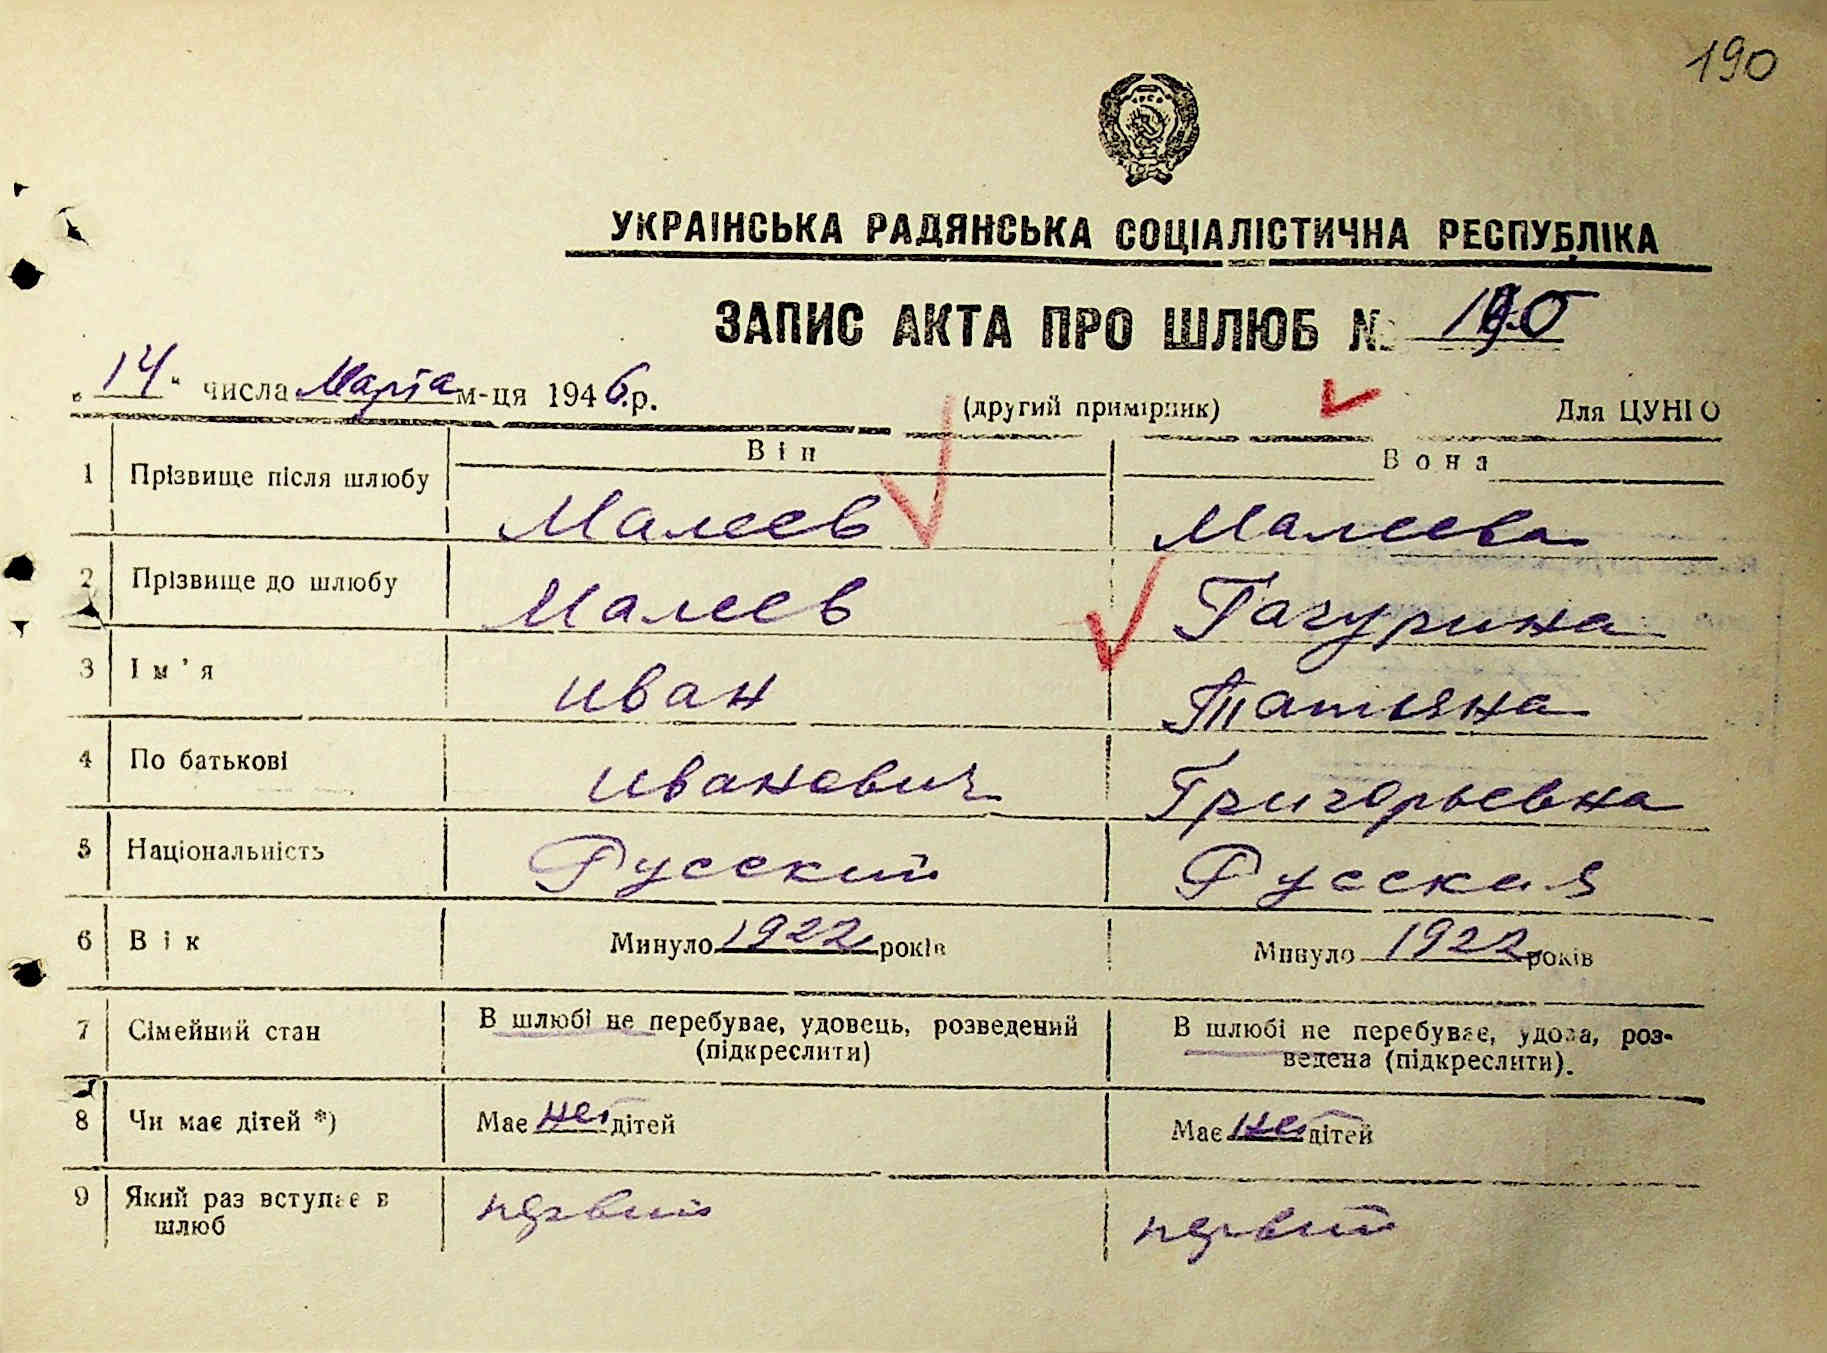 190
УКРАЇНСЬКА РАДЯНСЬКА СОЦІАЛІСТИЧНА РЕСПУБЛІКА
ЗАПИС АКТА ПРО ШЛЮБ № 190
„14“ числа Марта м-ця 1946 р. (другий примірник) Для ЦУНГО
Він Вона
1 Прізвище після шлюбу Малеев Малеева
2 Прізвище до шлюбу Малеев Гагурина
3 Ім'я Иван Татьяна
4 По батькові Иванович Григорьевна
5 Національність Русский Русская
6 Вік Минуло 1922 років Минуло 1922 років
7 Сімейний стан В шлюбі не перебуває, удовець, розведений (підкреслити) В шлюбі не перебуває, удова, роз-
ведена (підкреслити).
8 Чи має дітей *) Має нет дітей Має нет дітей
9 Який раз вступає в
шлюб первый первый